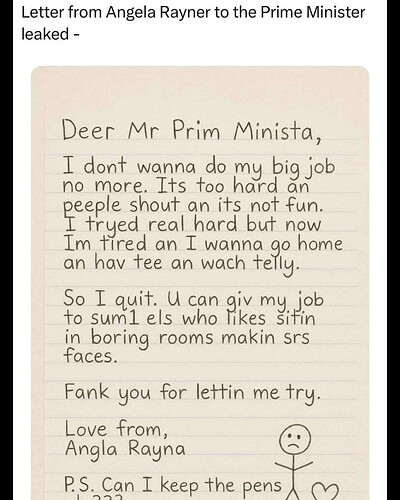 Letter from Angela Rayner to the Prime Minister
leaked -
Deer Mr Prim Minista,
I dont wanna do my big job
no more. Its too hard an
peeple shout an its not fun.
I tryed real hard but now
Im tired an I wanna go home
an hav tee an wach telly.
So I quit. U can giv my job
to sum1 els who likes sitin
in boring rooms makin srs
faces.
Fank you for lettin me try.
Love from,
Angla Rayna
P.S. Can I keep the pens